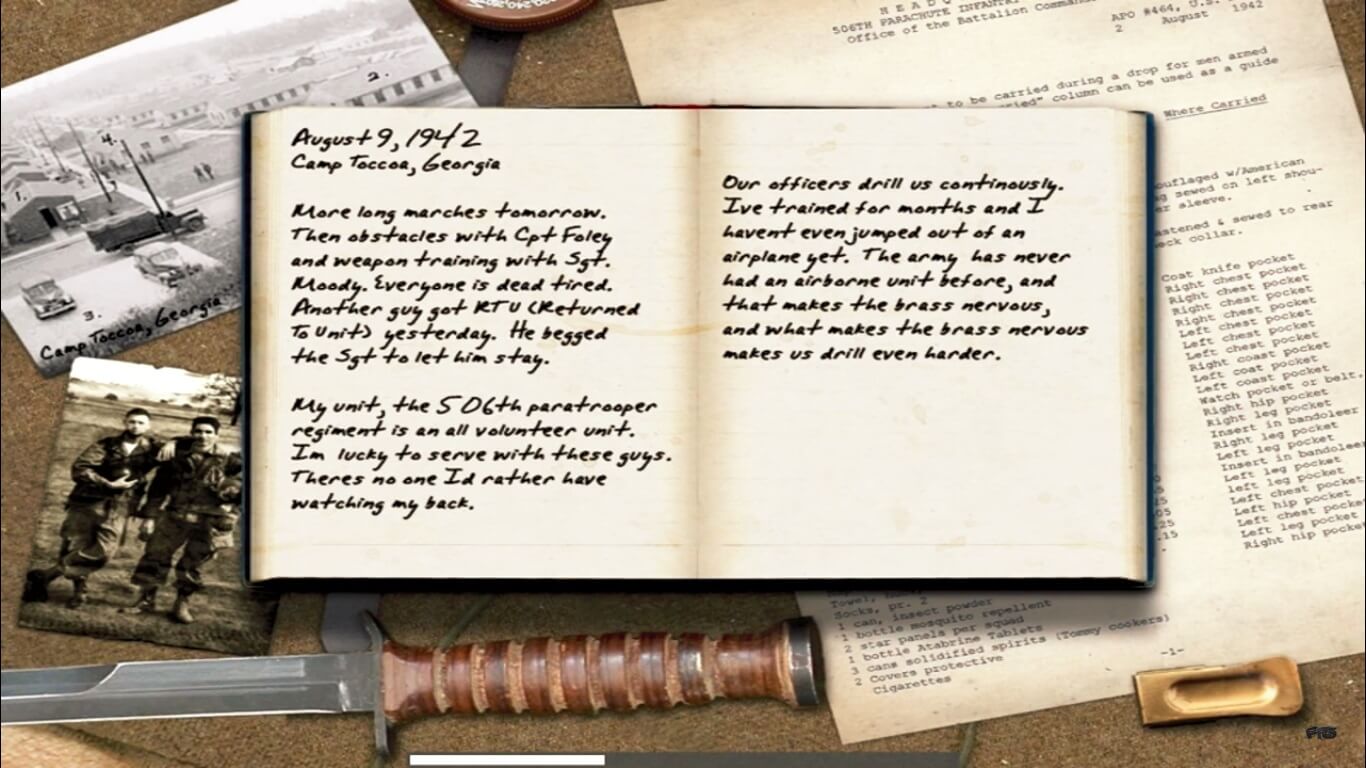 HEADQ
506TH PARACHUTE INFANTR
Office of the Battalion Comman
APO #464, U.S.
2 August 1942
to be carried during a drop for men armed
column can be used as a guide
Where Carried
ouflaged w/American
g sewed on left shou-
er sleeve.
astened & sewed to rear
eck collar.
Coat knife pocket
Right chest pocket
Right chest pocket
Right chest pocket
Left chest pocket
Left chest pocket
Left chest pocket
Right coast pocket
Left coat pocket
Left coast pocket
Watch pocket or belt.
Right hip pocket
Right leg pocket
Insert in bandoleer
Right leg pocket
Left leg pocket
Insert in bandoleer
Left leg pocket
left leg pocket
Left chest pocket
Left hip pocket
Left chest pocket
Left leg pocket
Right hip pocket
2.
4.
1.
3.
Camp Toccoa, Georgia
August 9, 1942
Camp Toccoa, Georgia
More long marches tomorrow.
Then obstacles with Cpt Foley
and weapon training with Sgt.
Moody. Everyone is dead tired.
Another guy got RTU (Returned
To Unit) yesterday. He begged
the Sgt to let him stay.
My unit, the 506th paratrooper
regiment is an all volunteer unit.
Im lucky to serve with these guys.
Theres no one Id rather have
watching my back.
Our officers drill us continously.
Ive trained for months and I
havent even jumped out of an
airplane yet. The army has never
had an airborne unit before, and
that makes the brass nervous,
and what makes the brass nervous
makes us drill even harder.
Socks, pr. 2
1 can, insect powder
1 bottle mosquito repellent
2 star panels per squad
1 bottle Atabrine Tablets
3 cans solidified spirits (Tommy cookers)
2 Covers protective
Cigarettes
-1-